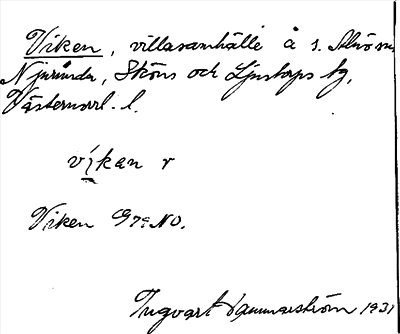 Viken, villasamhälle å s. Alnö sn,
Njurunda, Sköns och Ljustorps tg,
Västernorrl. l.
vikan r
Viken G79NO.
Ingvart Hammarström 1931